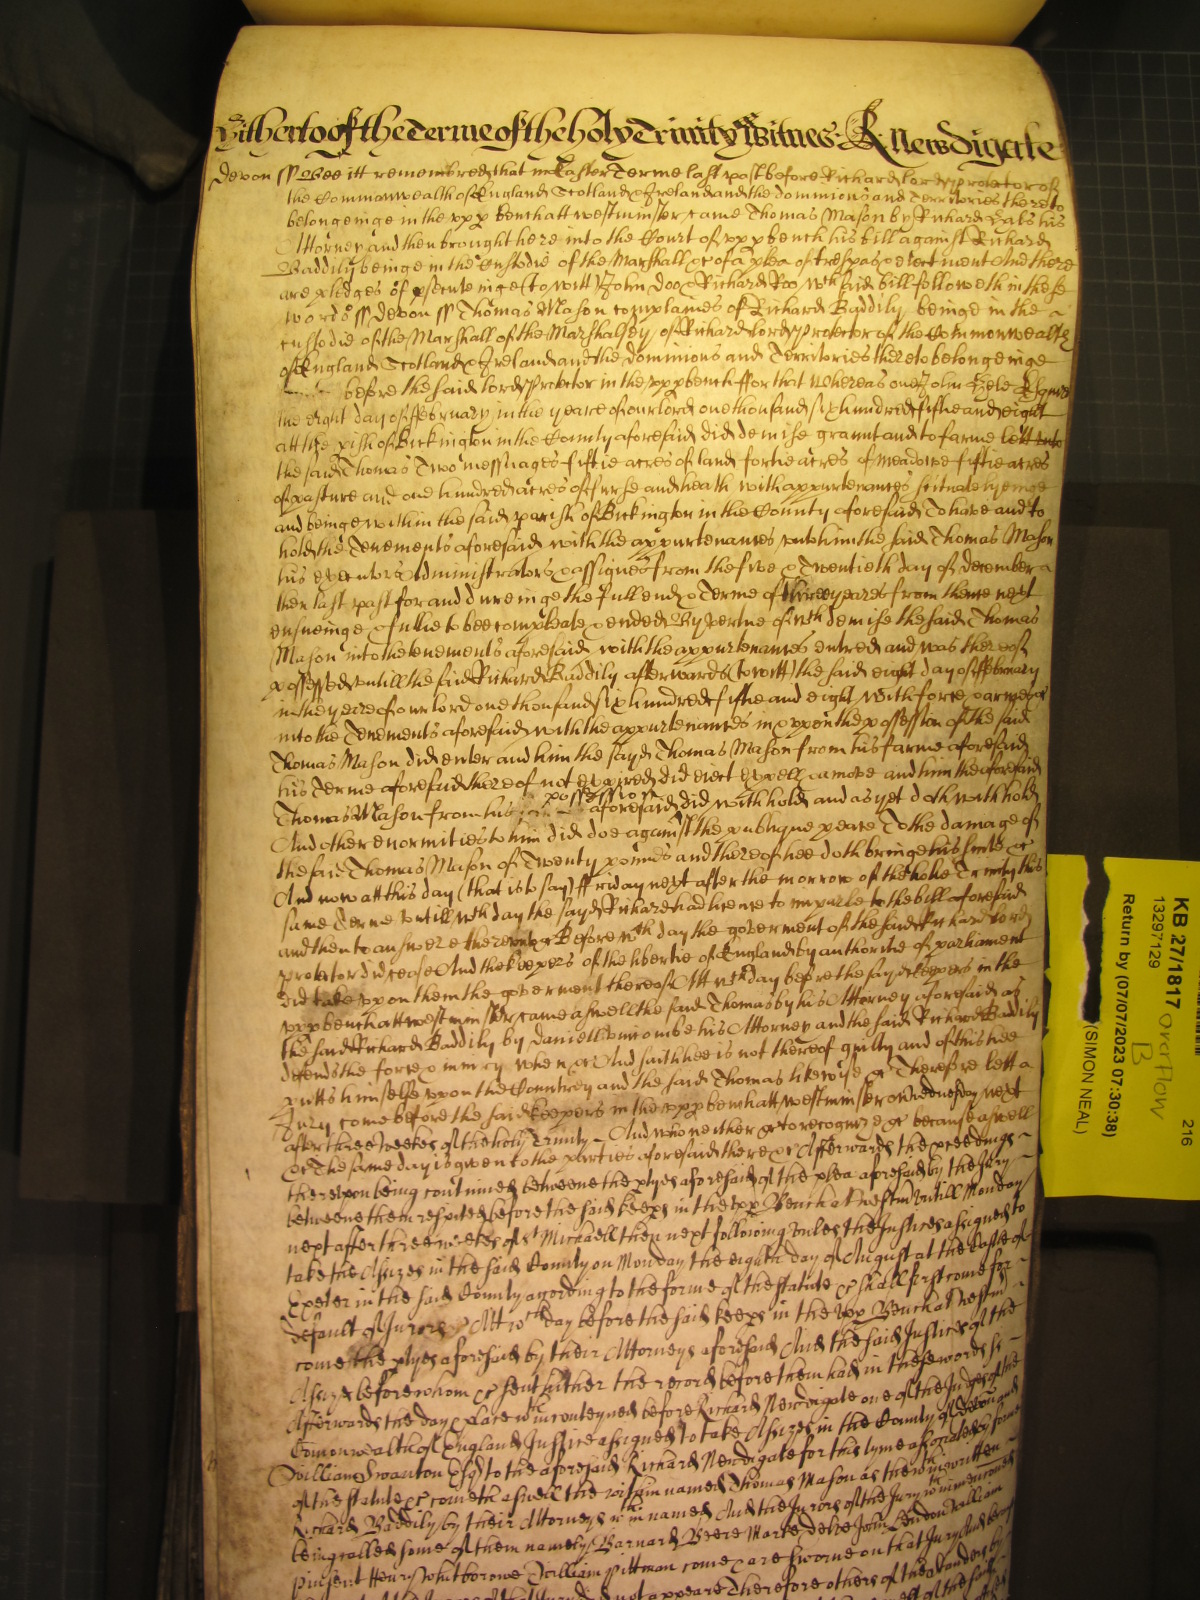 Hitherto of the Terme of the holy Trinity Witnes: R: Newdigate
Devon ss Bee itt remembred that in Easter Terme last past before Richard lord protector of
the Commonwealth of England Scotland & Ireland and the dominions and Territories thereto
belongeinge in the upp bench att westminster came Thomas Mason by Richard his
Attorney and then brought here into the Court of upp bench his bill against Richard
Baddily beinge in the Custodie of the Marshall &c of a plea of trespas & eiectment And there
are pledges of prosecuteinge to witt John Doo & Richard Roo wch said bill followeth in these
words ss Devon ss Thomas Mason complaines of Richard Baddily beinge in the
custodie of the Marshall of the Marshalsey of Richard lord protector of the Commonwealth
of England Scotland & Ireland and the dominions and Territories thereto belongeinge
before the said lord protector in the upp bench ffor that Whereas one John Hele Esquire
the eight day of ffebruary in the yeare of our lord one thousand six hundred fiftie and eight
att the pish of Bickington in the County aforesaid did demise graunt and to farme lett unto
the said Thomas Two messuages fiftie acres of land fortie acres of meadowe fiftie acres
of pasture and one hundred acres of furse and heath with appurtenances scituate lyeinge
and beinge within the said parish of Bickington in the County aforesaid To have and to
hold the Tenements aforesaid with the appurtenances unto him the said Thomas Mason
his executors Administrators & assignes from the five & Twentieth day of December
then last past for and dureinge the full end & Terme of three yeares from thence next
ensueinge & fullie to bee compleate & ended By vertue of wch demise the said Thomas
Mason into the tenements aforesaid with the appurtenances entred and was thereof
possessed untill the said Richard Baddily afterwards (to witt) the said eight day of ffebruary
in the yeare of our lord one thousand six hundred fiftie and eight with force & armes &c
into the Tenements aforesaid with the appurtenances in & upon the possession of the said
Thomas Mason did enter and him the sayd Thomas Mason from his farme aforesaid
his Terme aforesaid thereof not expired did eiect expell & amove and him the aforesaid
Thomas Mason from his possession aforesaid did withhold and as yet doth withhold
And other enormities to him did doe against the publique peace To the damage of
the said Thomas Mason of Twenty pounds and thereof hee doth bringe his suite &c
And now att this day (that is to say) ffriday next after the morrow of the holie Trinity this
same Terme untill wch day the sayd Richard had licence to imparle to the bill aforesaid
and then to answere thereunto &c Before wch day the goverment of the said Richard lord
protector did cease And the keepers of the libertie of England by authoritie of parliament
did take upon them the goverment thereof Att wch day before the sayd keepers in the
upp bench att westminster came aswell the said Thomas by his Attorney aforesaid as
the said Richard Baddily by Daniell his Attorney and the said Richard Baddily
defends the force & iniury when &c And saith hee is not thereof guilty and of this hee
putts himselfe upon the Countrey and the said Thomas likewise &c Therefore lett a
Jury come before the said keepers in the upp bench att westminster on wednesday next
after three weekes of the holy Trinity And who neither &c to recognize &c because aswell
&c The same day is given to the parties aforesaid there &c Afterwards the pceedings
thereupon being continued betweene the ptyes aforesaid of the plea aforesaid by the Jury
betweene them respited before the said keeps in the upp Bench at Westmr Untill Monday
next after three weekes of St Michaell then next following Unles the Justices assigned to
take the Assizes in the said County on Monday the eighth day of August at the Castle of
Exeter in the said County according to the forme of the statute &c shall first come for
default of Jurors &c Att wch day before the said keeps in the upp Bench at Westmr
come the ptyes aforesaid by their Attorneys aforesaid And the said Justices of the
Assizes before whom &c sent hither the record before them had in these words ss
Afterwards the day & place wthin conteyned before Richard Newdigate one of the Judges of the
Comonwealth of England Justice assigned to take Assizes in the County of Devon and
William Swanton Esqr to the aforesaid Richard Newdigate for this tyme associated by forme
of the statute &c cometh aswell the within named Thomas Mason as the wthin written
Richard Baddily by their Attorneys wthin named And the Jurors of the Jury wthin mencioned
being called some of them namely Barnard Beere Marke John Lendon William
pinsent Henry Whitborowe William pittman come & are sworne on that Jury And because
not appeare Therefore others of the standers by
KB 27/1817 overflow
13297129
B
216
Return by (07/07/2023 07:30:38)
(SIMON NEAL)